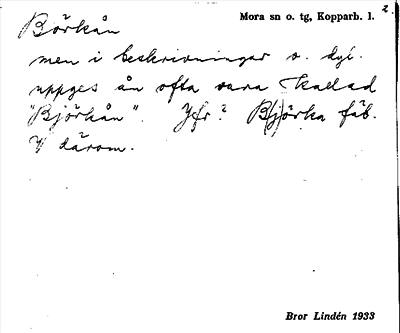 2.
Börkån
Mora sn o. tg, Kopparb. l.
men i beskrivningar o. dyl.
uppges ån ofta vara kallad
"Björkån". Jfr? B(j)örka fäb.
V därom.
Bror Lindén 1933